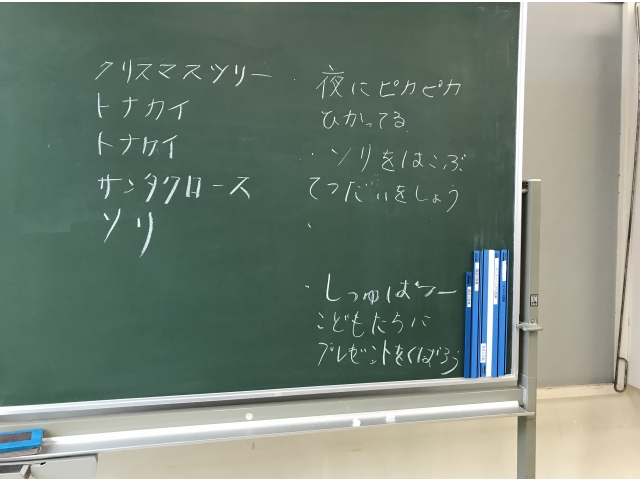 クリスマスツリー
トナカイ
トナケイ
サンタクロース
ソリ
・夜にピカピカ
ひかってる
・ソリをはこぶ
てつだいをしよう
・
・しつゅぱつー
こどもたちに
プレゼントをくばろう